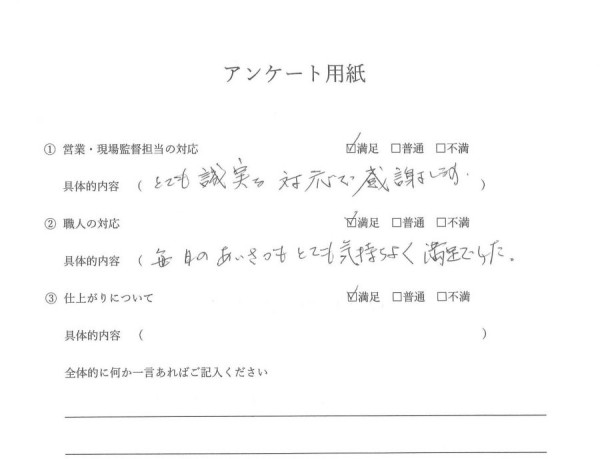 アンケート用紙
① 営業・現場監督担当の対応 ☑満足 ☐普通 ☐不満
具体的内容 ( とても誠実な対応で感謝します. )
② 職人の対応 ☑満足 ☐普通 ☐不満
具体的内容 ( 毎日のあいさつもとても気持ちよく満足でした.
③ 仕上がりについて ☑満足 ☐普通 ☐不満
具体的内容 ( )
全体的に何か一言あればご記入ください